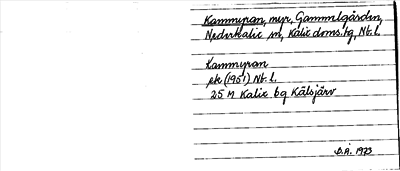 Kammyran, myr, Gammelgården,
Nederkalix sn, Kalix doms. tg, Nb. l.
Kammyran
ek (1951) Nb. l.
25 M Kalix bg Kälsjärv
B.Å. 1973